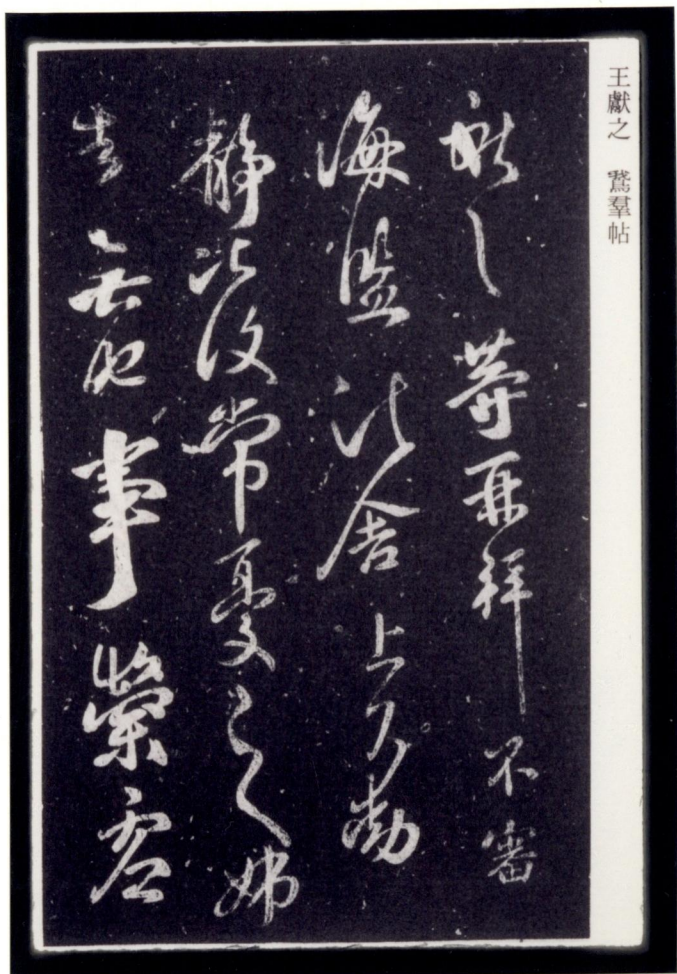 王獻之 鵞羣帖
獻之等再拜不審
海鹽諸舍上下動
靜比復常憂之姊
告無他事崇虛